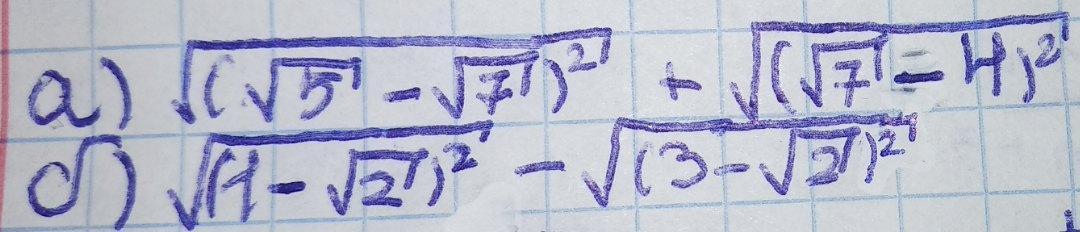 а) √(√5 - √7)² + √(√7 - 4)²
б) √(1 - √2)² - √(3 - √2)²